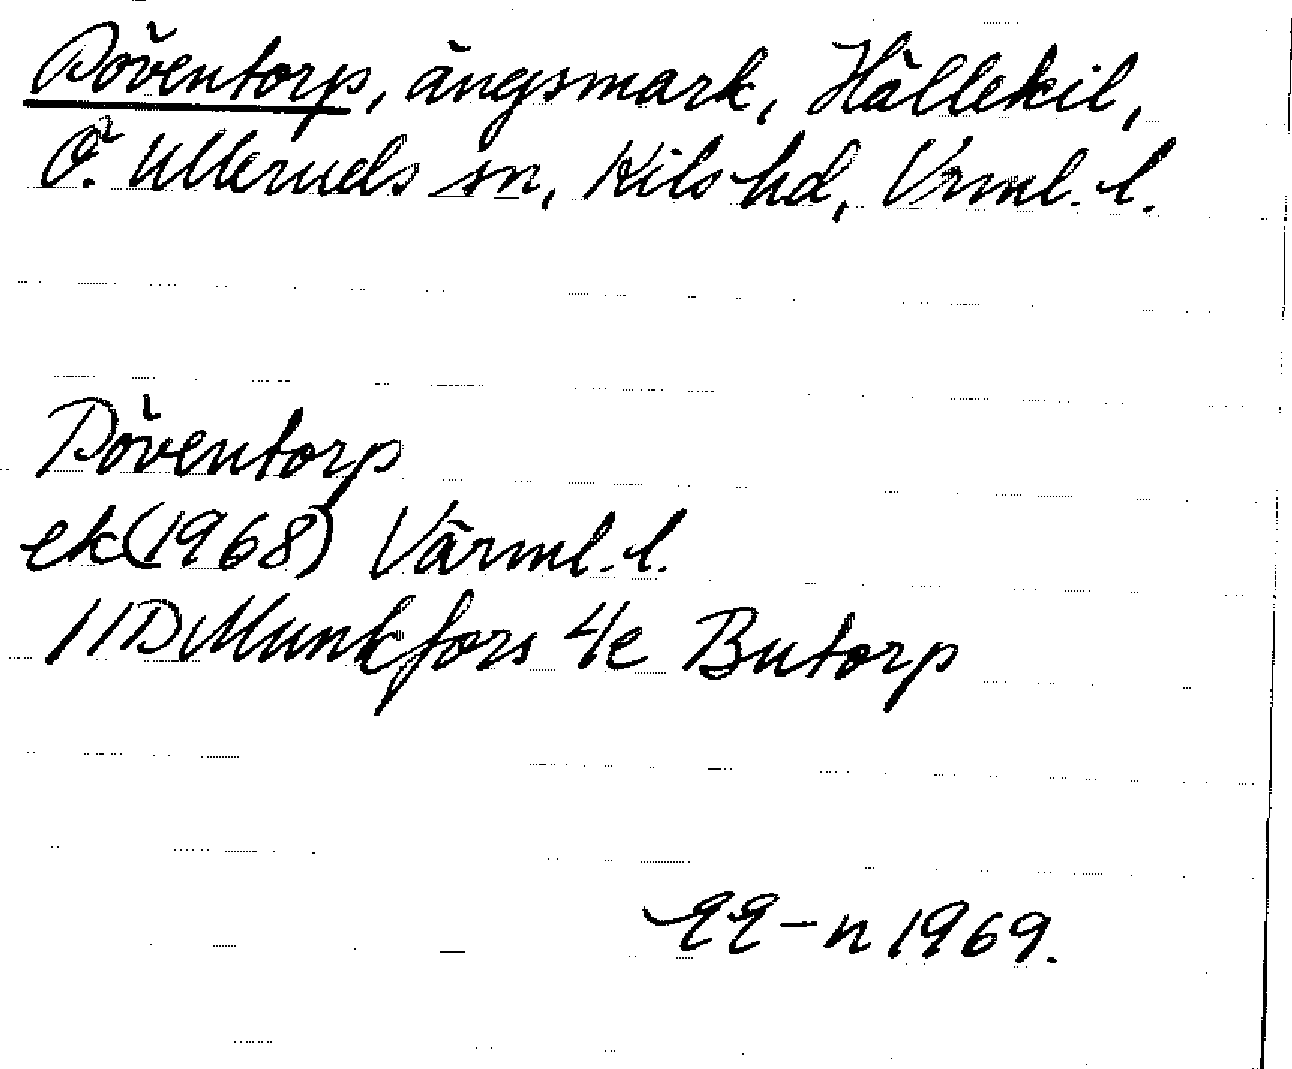 Döventorp, ängsmark, Hällekil,
Ö. Ulleruds sn, Kils hd, Vrml. l.
Döventorp
ek (1968) Värml. l.
11D Munkfors 4e Butorp
EE-n 1969.